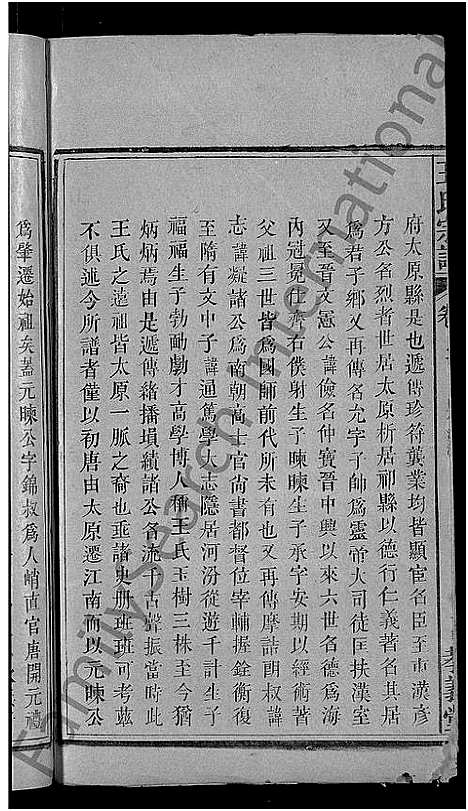 王氏宗譜
卷
府太原縣是也遞傳珍符龔業均皆顯宦名臣至東漢彥
方公名烈者世居太原析居祁縣以德行仁義著名其居
爲君子鄉又再傳名允字子師爲靈帝大司徒匡扶漢室
又至晉文憲公諱儉名仲寶晉中興以來六世名德爲海
內冠冕仕齊右僕射生子暕暕生子承字安期以經術著
父祖三世皆爲國師前代所未有也又再傳摩詰朗叔諱
志諱凝諸公爲南朝高士官尙書都督位宰輔握銓衡復
至隋有文中子諱通篤學大志隱居河汾從遊千計至今猶
福福生子勃勔勮才高學博人稱王氏玉樹三株至今猶
炳炳焉由是遞傳緒播塤績諸公名流千古聲振當時此
王氏之遠祖皆太原一脈之裔也垂諸史册班班可考茲
不俱述今所譜者僅以初唐由太原遷江南而以元暕公
爲肇遷始祖矣蓋元暕公字錦叔爲人峭直官唐開元禮
FamilySearch International